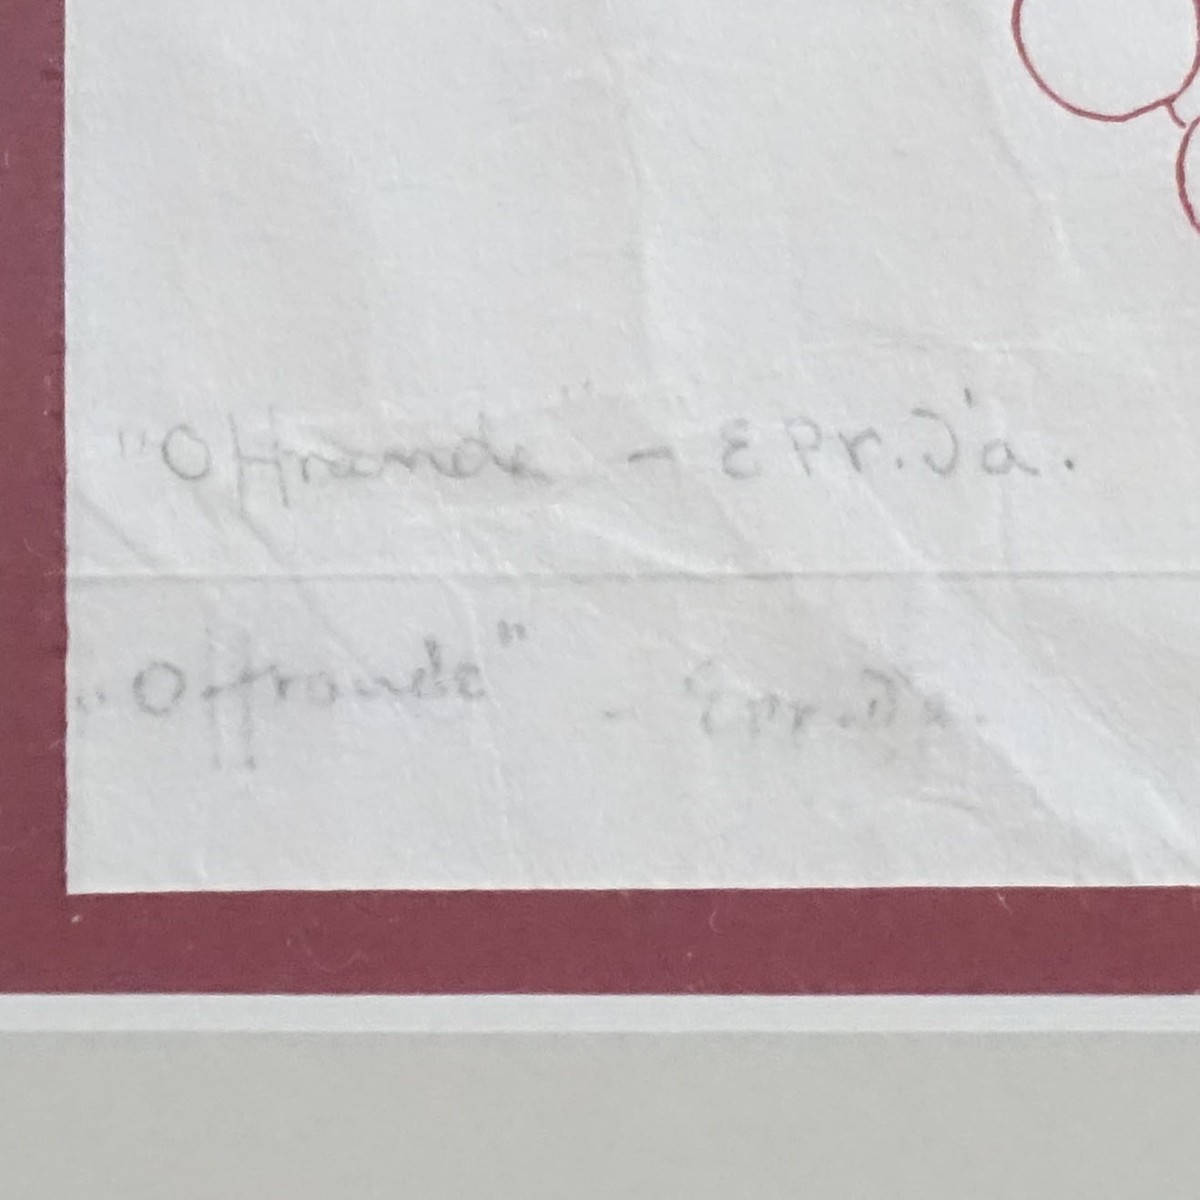 "Offrande" - Epr. d'a.
"Offrande" - Epr. d'a.